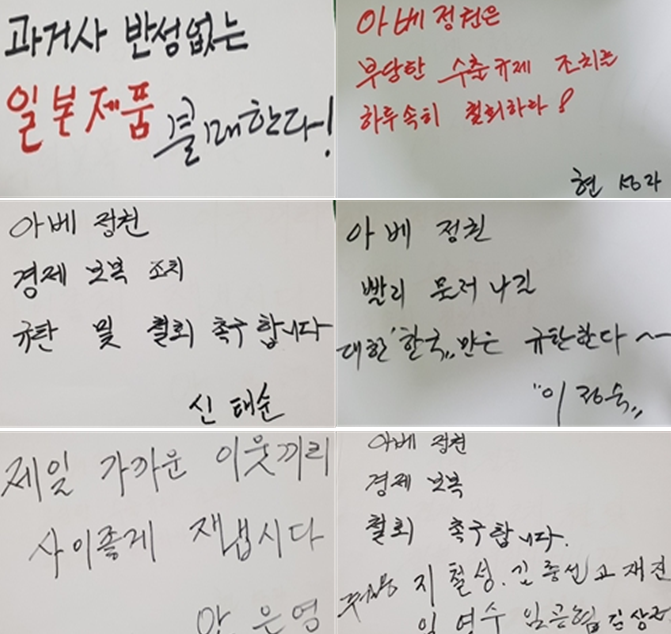 과거사 반성없는
일본제품 결매한다!
아베정권은
부당한 수출규제 조치를
하루속히 철회하라!
현 성자
아베 정권
경제 보복 조치
규탄 및 철회 촉구합니다
신태순
아베 정권
빨리 문저 나길
대한'한국,,만은 규탄한다~
"이정숙,,
제일 가까운 이웃끼리
사이좋게 재냅시다
안은영
아베 정권
경제 보복
철회 촉구합니다.
지철성. 김종선 고재진
임영수 임근협 김상